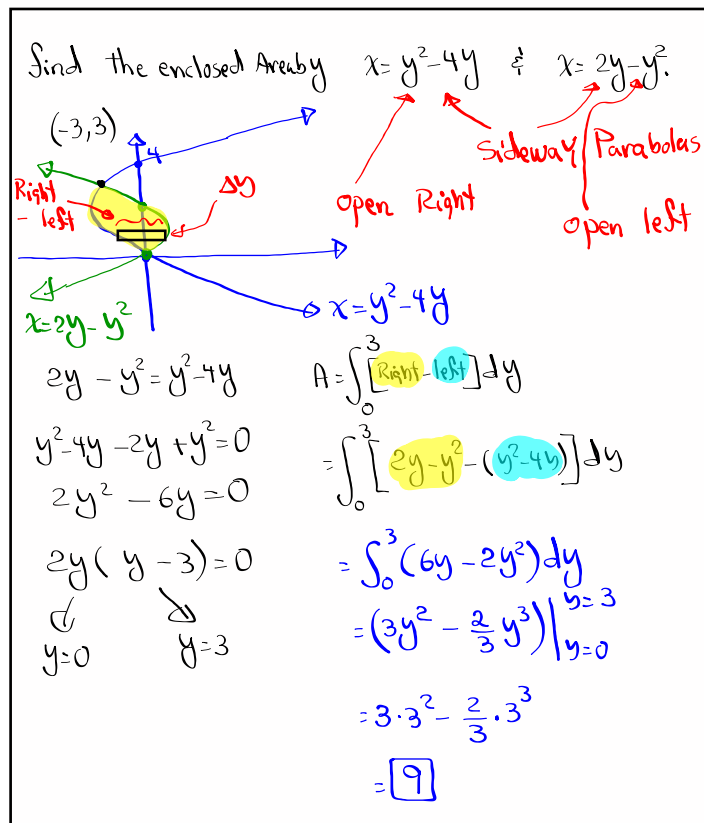 find the enclosed Area by x = y² - 4y & x = 2y - y².
Sideway Parabolas
Open Right
Open left
(-3,3)
4
Right - left
Δy
x = 2y - y²
x = y² - 4y
2y - y² = y² - 4y
y² - 4y - 2y + y² = 0
2y² - 6y = 0
2y( y - 3) = 0
y = 0 y = 3
A = ∫₀³ [Right - left] dy
= ∫₀³ [2y - y² - (y² - 4y)] dy
= ∫₀³ (6y - 2y²) dy
= (3y² - 2/3 y³) | y = 3 y = 0
= 3 · 3² - 2/3 · 3³
= 9